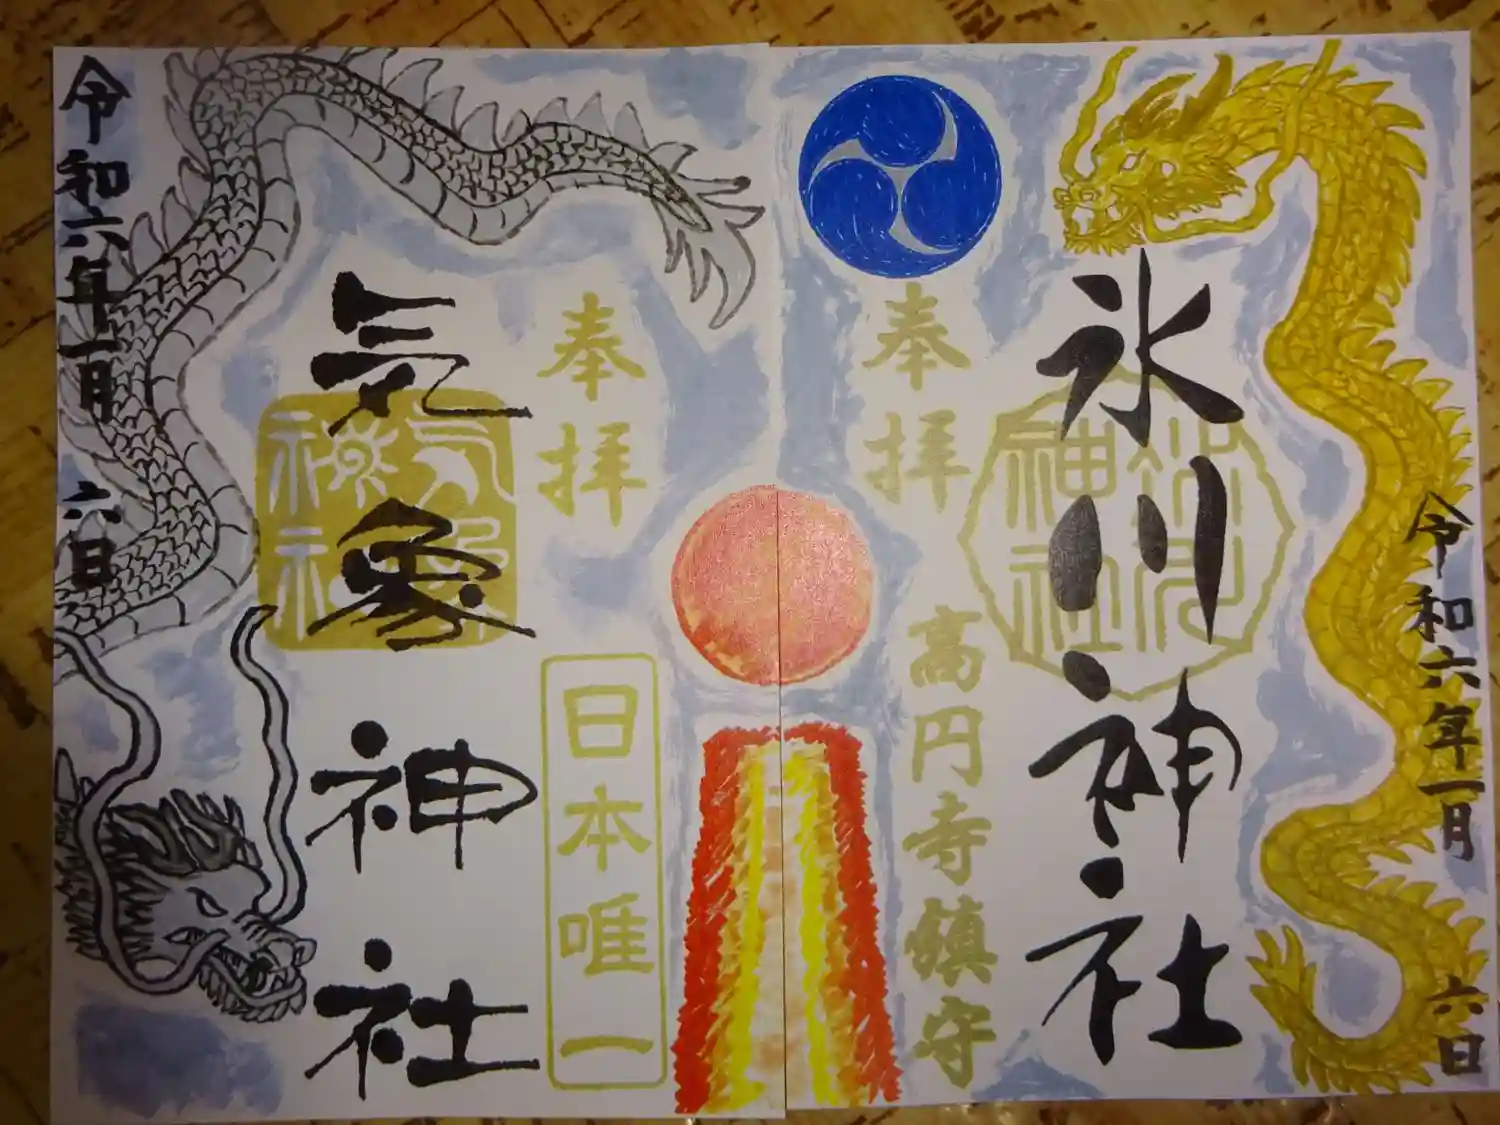 令和六年一月 六日
氷川神社
氷川
神社
奉拝
高円寺鎮守
奉拝
日本唯一
気象神社
令和六年一月 六日